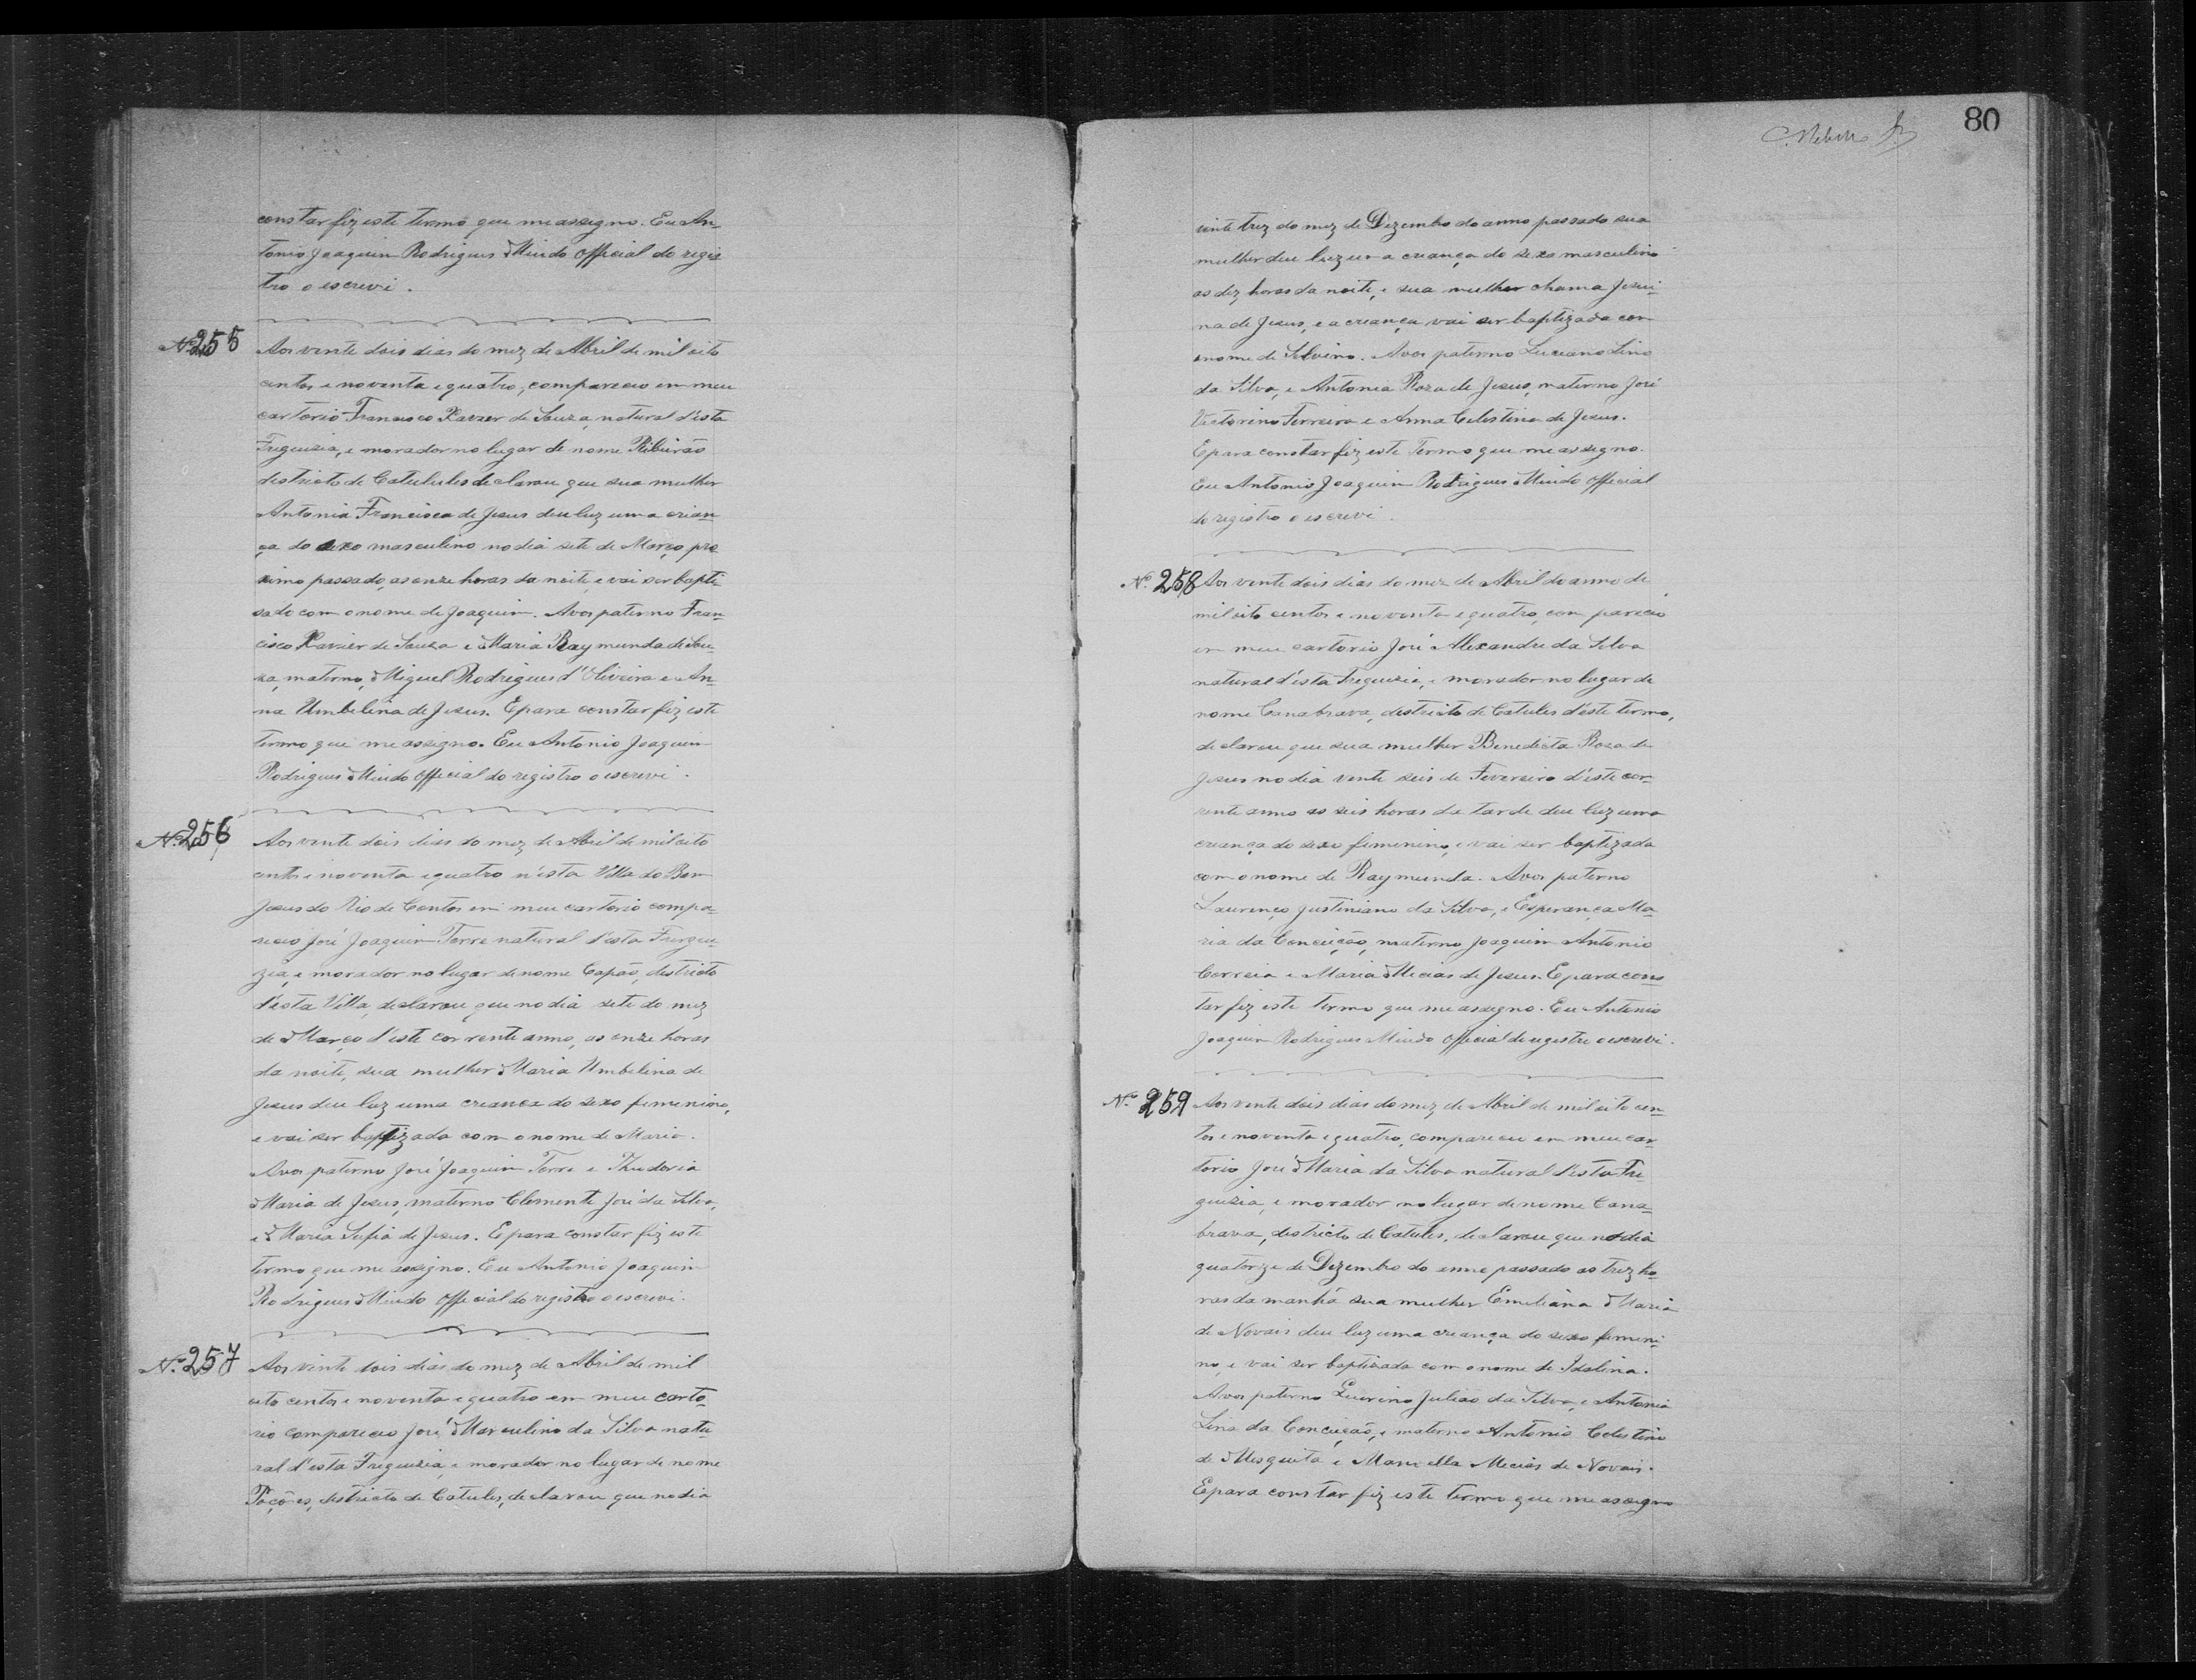 constar fiz este termo que me assigno. Eu An-
tonio Joaquim Rodrigues Miudo official do regis
tro o escrevi.
Nº 255
Aos vente dois dias do mez de Abril de mil oito
centos e noventa e quatro, compareceo em meu
cartorio Francisco Xavier de Souza, natural d'esta
Freguizia, e morador no lugar de nome Ribeirão
destricto de Catulules declarou que sua mulher
Antonia Francisca de Jesus deu luz uma crian-
ça do sexo masculino no dia sete de Março pro
ximo passado, as onze horas da noite, e vai ser bapti
sado com o nome de Joaquim. Avos paterno Fran-
cisco Xavier de Souza e Maria Raymunda de Sou-
za, materno, Miguel Rodrigues d'Oliveira e An-
na Umbelina de Jesus. E para constar fiz este
termo que me assigno. Eu Antonio Joaquim
Rodrigues Miudo official do registro o escrevi.
Nº 256
Aos vente dois dias do mez de Abril de mil oito
centos e noventa e quatro n'esta Villa do Bom
Jesus do Rio de Contas em meu cartorio compa-
receo José Joaquim Torre natural d'esta Fregue-
zia, e morador no lugar de nome Capão, destricto
d'esta Villa, declarou que no dia sete do mez
de Março d'este corrente anno, as onze horas
da noite, sua mulher Maria Umbelina de
Jesus deu luz uma creanca do sexo femenino,
e vai ser baptizada com o nome de Maria.
Avos paterno José Joaquim Torre e Theodoria
Maria de Jesus, materno Clemente José da Silva,
e Maria Sufia de Jesus. E para constar fiz este
termo que me assigno. Eu Antonio Joaquim
Rodrigues Miudo official do registro o escrevi.
Nº 257
Aos vinte dois dias do mez de Abril de mil
oito centos e noventa e quatro em meu carto-
rio compareceo José Marculino da Silva natu-
ral d'esta Freguizia, e morador no lugar de nome
Poções, destricto de Catules, declarou que no dia
80
vente trez do mez de Dezembro do anno passado sua
mulher deu luz uma creança do sexo masculino
as dez horas da noite, e sua mulher chama Jesui-
na de Jesus, e a creança vai ser baptizada com
o nome de Silvino. Avos paterno Luciano Lino
da Silva, e Antonia Roza de Jesus, materno José
Victorino Ferreira e Anna Celestina de Jesus.
E para constar fiz este Termo que me assigno.
Eu Antonio Joaquim Rodrigues Miudo official
do registro o escrevi.
Nº 258
Aos vente dois dias do mez de Abril do anno de
mil oito centos e noventa e quatro, com pareceo
em meu cartorio José Alexandre da Silva
natural d'esta Freguizia, e morador no lugar de
nome Canabrava, destricto de Catules d'este termo,
declarou que sua mulher Benedicta Roza de
Jesus no dia vente seis de Fevereiro d'este cor-
rente anno as seis horas da tarde deu luz uma
creança do sexo femenino, e vai ser baptizada
com o nome de Raymunda. Avos paterno
Laurenço Justiniano da Silva, e Esperança Ma-
ria da Conceição, materno Joaquim Antonio
Correia e Maria Mecias de Jesus. E para cons
tar fiz este termo que me assigno. Eu Antonio
Joaquim Rodrigues Miudo official do registro o escrevi.
Nº 259
Aos vente dois dias do mez de Abril de mil oito cen-
tos e noventa e quatro, compareceu em meu car-
torio José Maria da Silva natural d'esta Fre
guizia, e morador no lugar de nome Cana-
brava, destricto de Catules, declarou que no dia
quatorze de Dezembro do anno passado as trez ho-
ras da manhã sua mulher Emiliana Maria
de Novais deu luz uma creança do sexo femeni-
no, e vai ser baptizada com o nome de Idalina.
Avos paterno Juliao da Silva, e Antonia
Lina da Conceição, e materno Antonio Celestino
de Mesquita e Manoella Mecias de Novais.
E para constar fiz este termo que me assigno